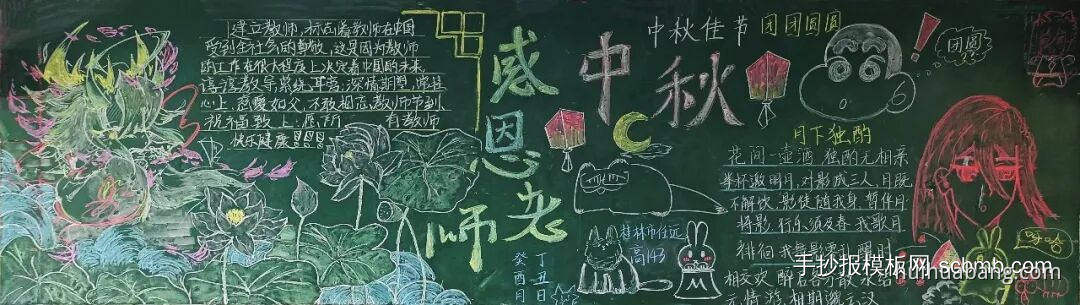 建立教师，标志着教师在中国
受到全社会的尊敬，这是因为教师
的工作在很大程度上决定着中国的未来。
谆谆教导系统耳旁，深情期望
心上，慈爱如父，不敢相忘，教师节到
祝福致上：愿所有教师
快乐健康！！！
感恩老师
中秋
中秋佳节 团团圆圆
团圆
月下独酌
花间一壶酒，独酌无相亲
举杯邀明月，对影成三人，月既
不解饮，影徒随我身，暂伴月
将影，行乐须及春，我歌月
徘徊 我舞影零乱 醒时
相交欢 醉后各分散 永结
无情游 相期邈云汉
桂林市任远
高143
丁丑日
癸酉月
哈哈
手抄报模板网 schmb.com
huihuabang.com